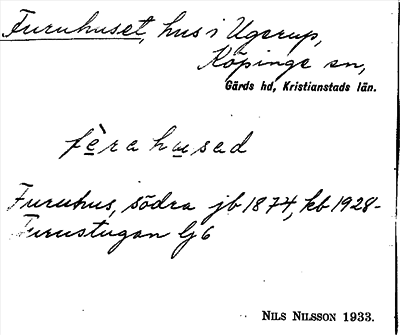 Furuhuset, hus i Ugerup,
Köpinge sn,
Gärds hd, Kristianstads län.
fèrahu̲sad
Furuhus, södra jb 1874, kb 1928-
Furustugan lj 6
NILS NILSSON 1933.